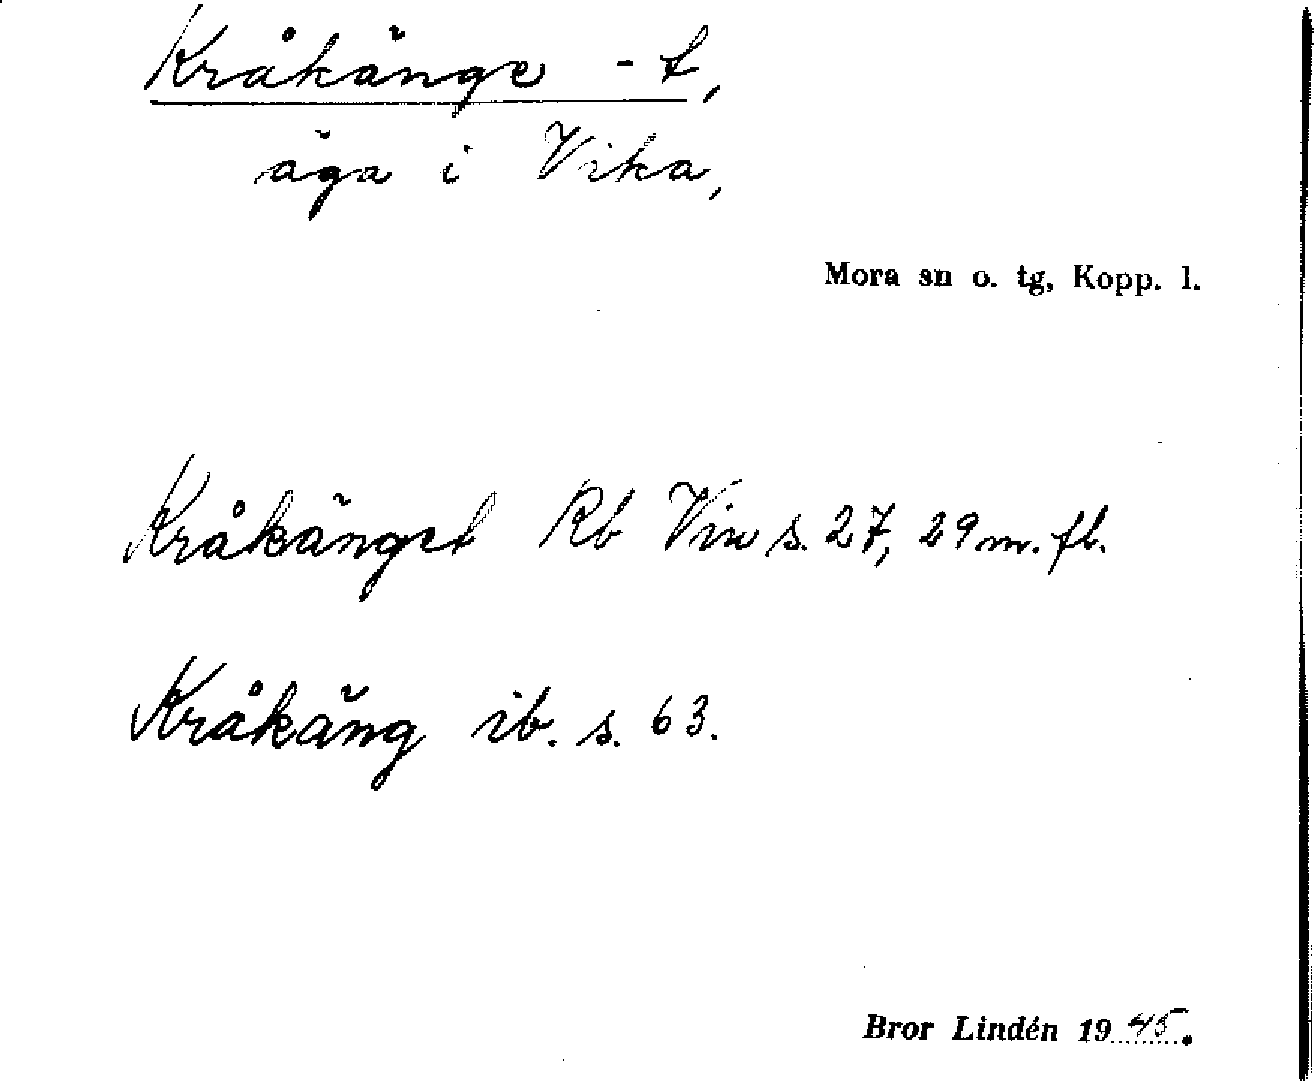 Kråkänge -t,
äga i Vika,
Mora sn o. tg, Kopp. l.
Kråkänget Rb Vin s. 27, 29 m. fl.
Kråkäng ib. s. 63.
Bror Lindén 1945.